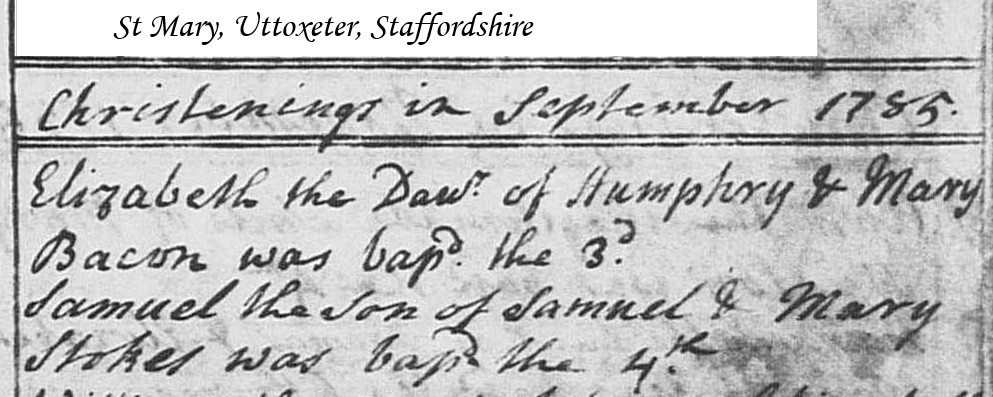 St Mary, Uttoxeter, Staffordshire
Christenings in September 1785.
Elizabeth the Dawr. of Humphry & Mary
Bacon was bapd. the 3d.
Samuel the Son of Samuel & Mary
Stokes was bapd. the 4th.